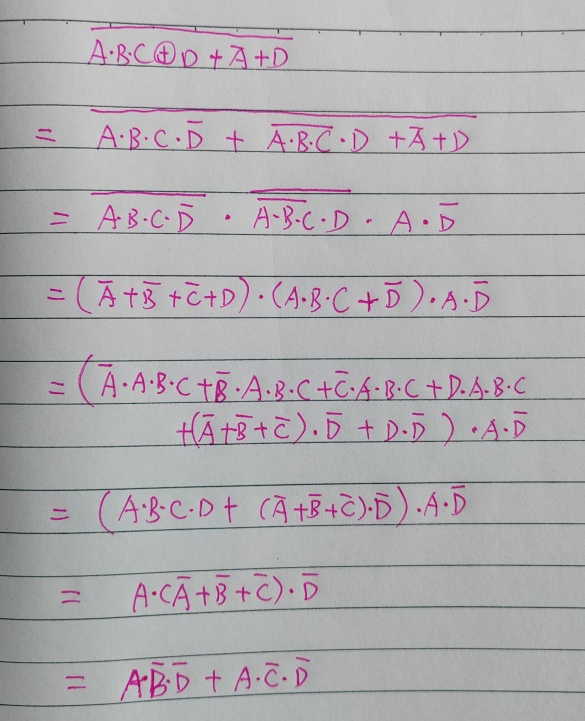 \overline{A·B·C⊕D + \overline{A}+D}
= \overline{A·B·C·\overline{D} + \overline{A·B·C}·D + \overline{A}+D}
= \overline{A·B·C·\overline{D}} · \overline{\overline{A·B·C}·D} · A·\overline{D}
= (\overline{A}+\overline{B}+\overline{C}+D)·(A·B·C+\overline{D})·A·\overline{D}
= (\overline{A}·A·B·C+\overline{B}·A·B·C+\overline{C}·A·B·C+D·A·B·C
+(\overline{A}+\overline{B}+\overline{C})·\overline{D} + D·\overline{D})·A·\overline{D}
= (A·B·C·D+ (\overline{A}+\overline{B}+\overline{C})·\overline{D})·A·\overline{D}
= A·(\overline{A}+\overline{B}+\overline{C})·\overline{D}
= A·\overline{B}·\overline{D} + A·\overline{C}·\overline{D}